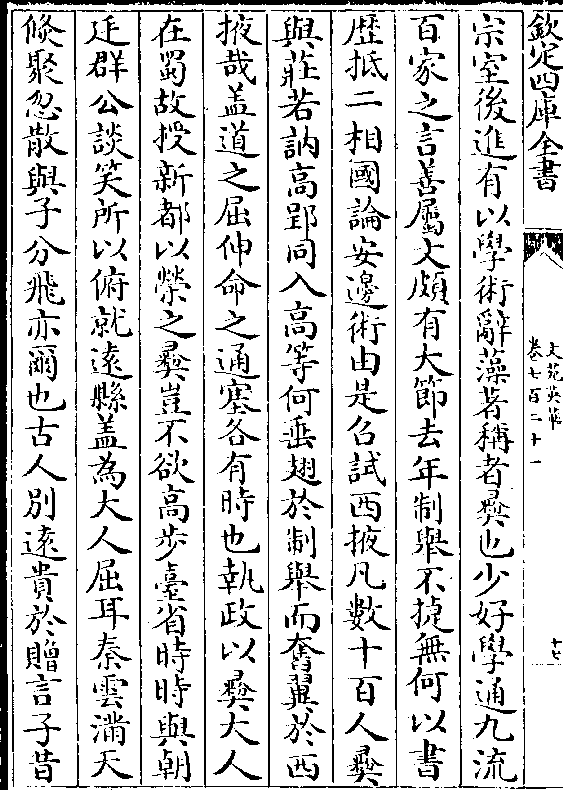 欽定四庫全書
文苑英華
卷七百二十一
十七
宗室後進有以學術辭藻著稱者彛也少好學通九流
百家之言善屬文頗有大節去年制舉不捷無何以書
歴抵二相國論安邊術由是召試西掖凡數十百人彛
與莊若訥高郢同入高等何垂翅於制舉而奮翼於西
掖哉盖道之屈伸命之通塞各有時也執政以彛大人
在蜀故授新都以榮之彛豈不欲高步臺省時時與朝
廷群公談笑所以俯就逺縣盖為大人屈耳秦雲滿天
倏聚忽散與子分飛亦爾也古人別逺貴於贈言子昔